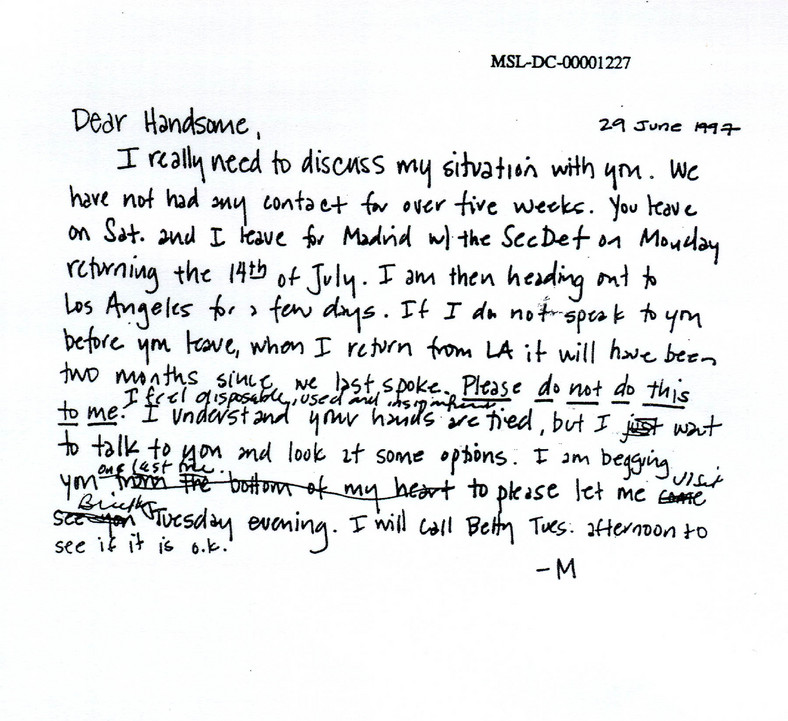 MSL-DC-00001227
29 June 1997
Dear Handsome,
I really need to discuss my situation with you. We
have not had any contact for over five weeks. You leave
on Sat. and I leave for Madrid w/ the SecDef on Monday
returning the 14th of July. I am then heading out to
Los Angeles for a few days. If I do not speak to you
before you leave, when I return from LA it will have been
two months since we last spoke. Please do not do this
I feel disposable, used and insignificant.
to me. I understand your hands are tied, but I just want
to talk to you and look at some options. I am begging
one last time.
you from the bottom of my heart to please let me come visit
Briefly
see you Tuesday evening. I will call Betty Tues. afternoon to
see if it is o.k.
-M